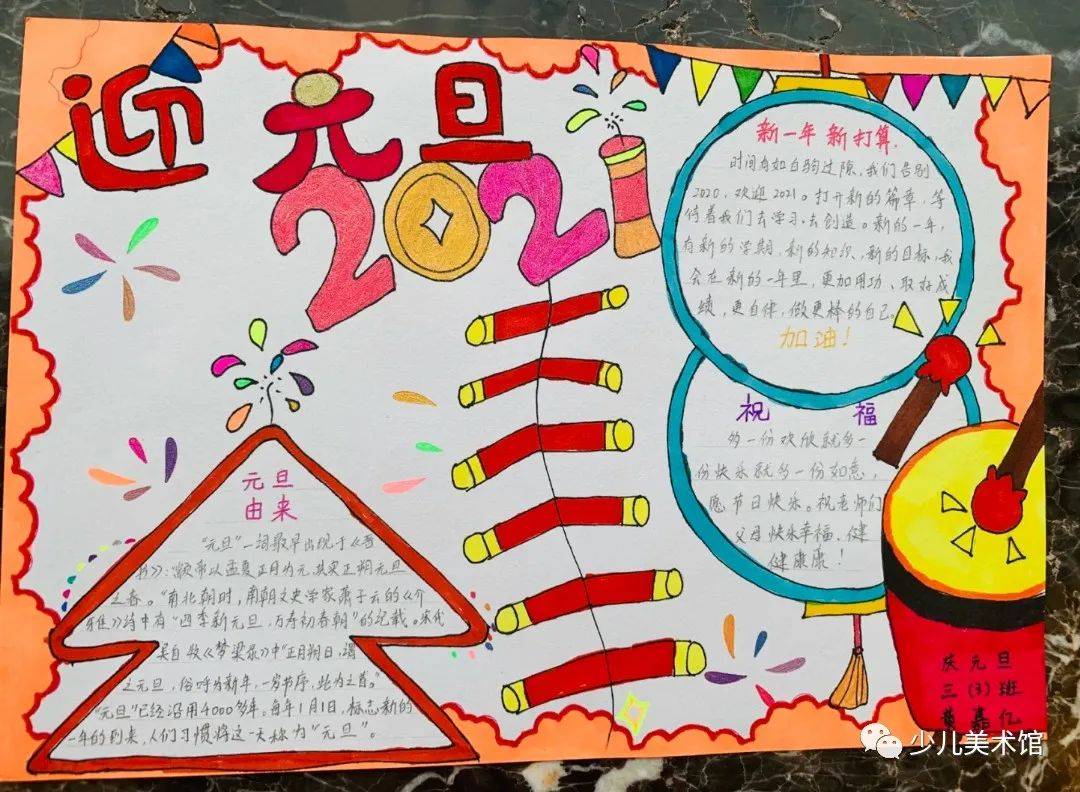 迎元旦
2021
新一年新打算.
时间有如白驹过隙,我们告别
2020,欢迎2021。打开新的篇章,等
待着我们去学习、去创造。新的一年,
有新的学期,新的知识,新的目标,我
会在新的一年里,更加用功、取好成
绩,更自律,做更棒的自己。
加油!
祝福
多一份欢欣就多一
份快乐就多一份如意,
愿节日快乐。祝老师们
父母快乐幸福、健
健康康!
元旦
由来
"元旦"一词最早出现于《晋
书》:"颛帝以孟夏正月为元,其实正朔元旦
之春。"南北朝时,南朝文史学家萧子云的《介
雅》诗中有"四季新元旦,万寿初春朝"的记载。宋代
吴自牧《梦梁录》中"正月朔日,谓
之元旦,俗呼为新年,一岁节序,此为之首。"
"元旦"已经沿用4000多年。每年1月1日,标志新的
一年的到来,人们习惯将这一天称为"元旦"。
庆元旦
三(3)班
黄嘉亿
少儿美术馆